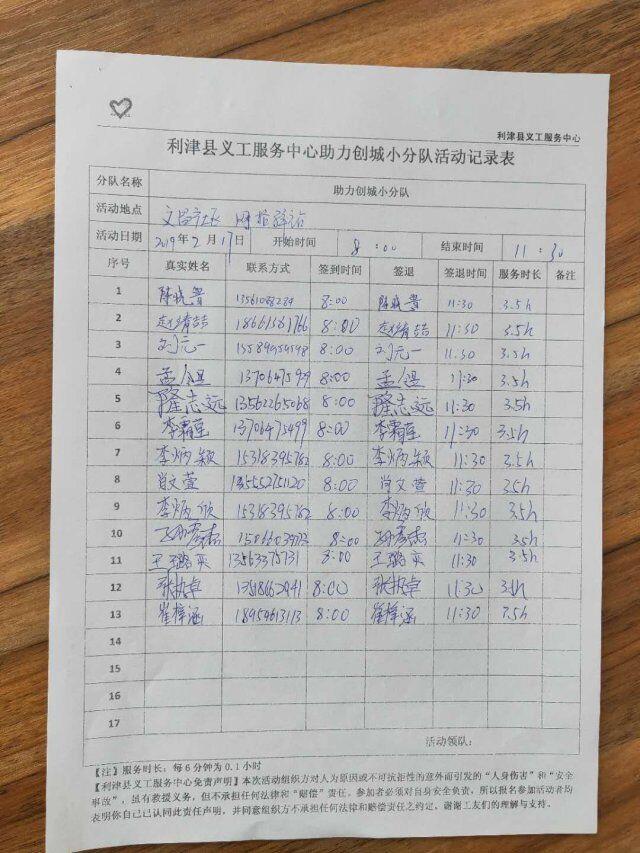 利津县义工服务中心
利津县义工服务中心助力创城小分队活动记录表
分队名称 助力创城小分队
活动地点 文昌社区
活动日期 2019年2月17日 开始时间 8:00 结束时间 11:30
序号 真实姓名 联系方式 签到时间 签退 签退时间 服务时长 备注
1 陈晓普 13561088284 8:00 陈晓普 11:30 3.5h
2 18661561766 8:00 11:30 3.5h
3 刘元一 15589959598 8:00 刘元一 11:30 3.5h
4 13706475799 8:00 11:30 3.5h
5 隆志远 13562265068 8:00 隆志远 11:30 3.5h
6 13706475499 8:00 11:30 3.5h
7 李炳颖 15318395782 8:00 李炳颖 11:30 3.5h
8 肖文萱 8:00 肖文萱 11:30 3.5h
9 李炳欣 15318395782 8:00 李炳欣 11:30 3.5h
10 8:00 11:30 3.5h
11 王璐奕 13563375731 8:00 王璐奕 11:30 3.5h
12 8:00 11:30
13 崔梓涵 18954613113 8:00 崔梓涵 11:30
14
15
16
17
活动领队：
【注】服务时长：每6分钟为0.1小时
【利津县义工服务中心免责声明】本次活动组织方对人为原因或不可抗拒性的意外而引发的“人身伤害”和“安全
事故”，虽有救援义务，但不承担任何法律和“赔偿”责任。参加者必须对自身安全负责，所以报名参加活动者均
表明你自己已认同此责任声明，并同意组织方不承担任何法律和赔偿责任之约定，谢谢工友们的理解与支持。